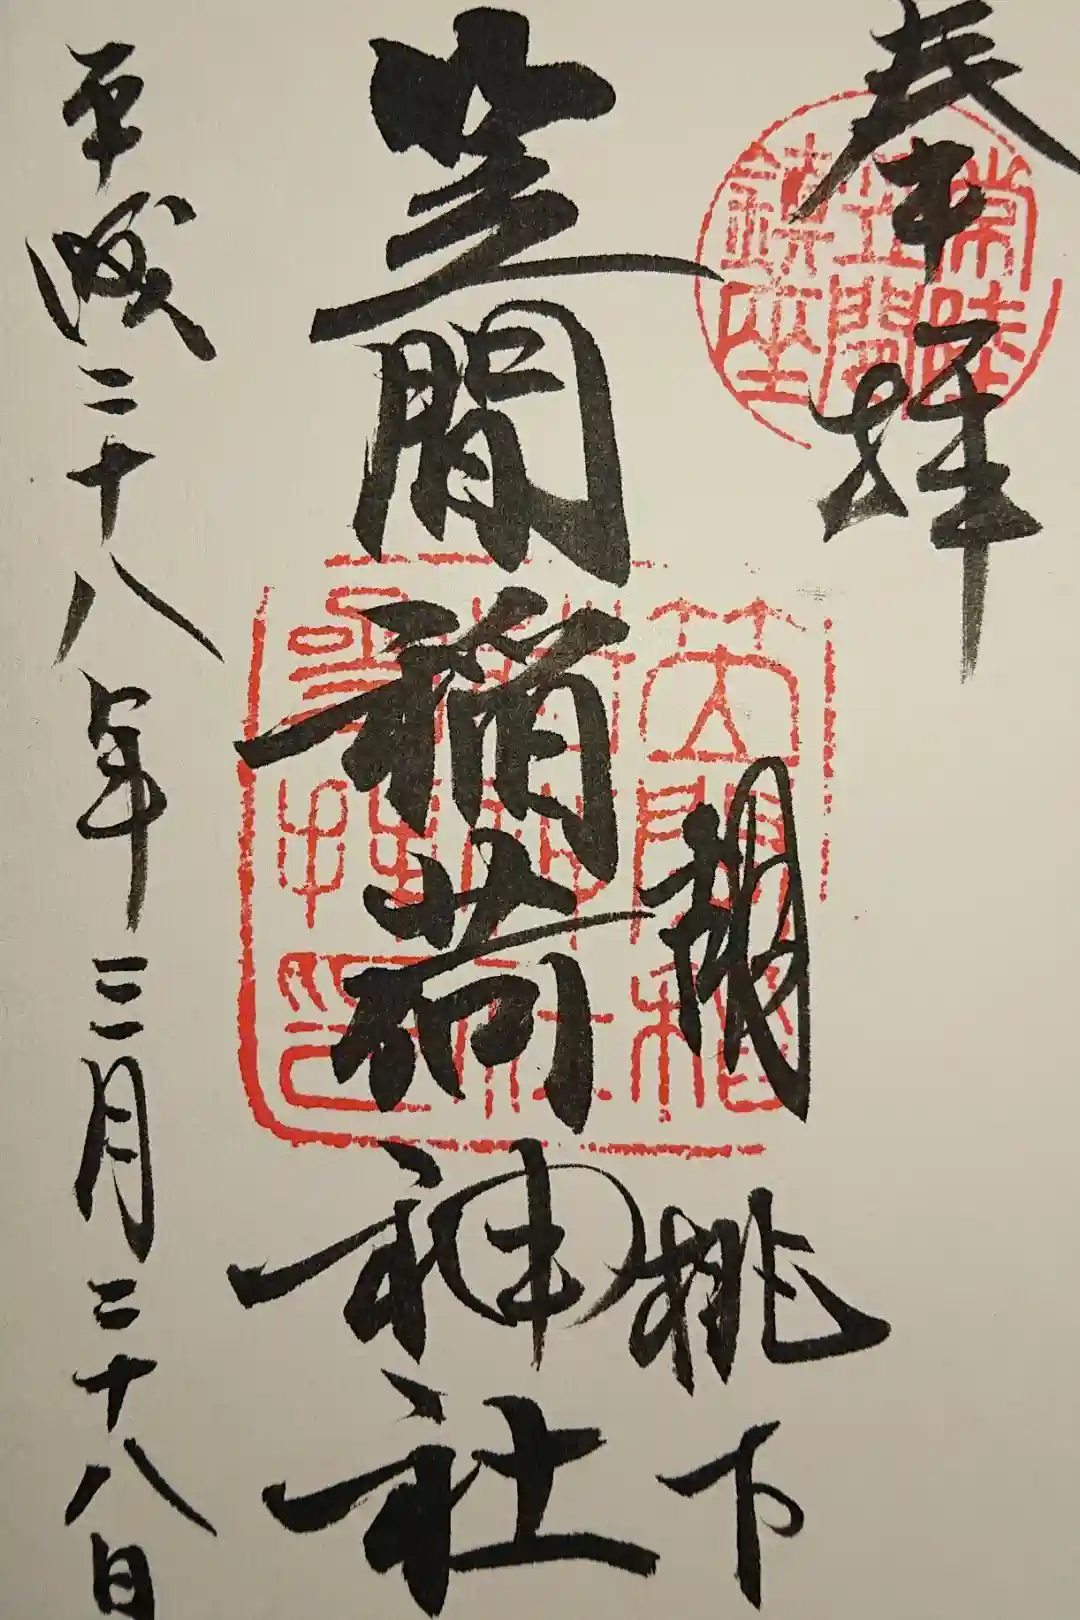 奉拝
常陸
笠間
鎮座
胡桃下
笠間稲荷神社
笠間稲
荷神社
參拜印
平成二十八年三月二十八日